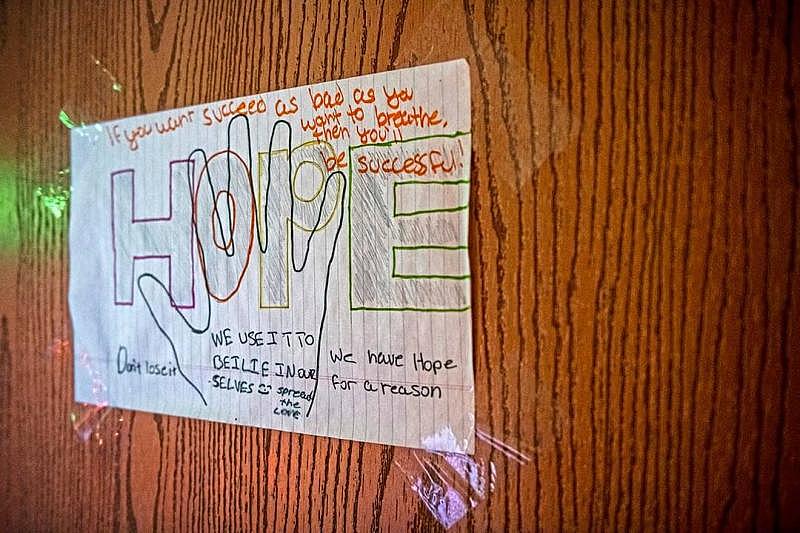 If you want succeed as bad as you
want to breathe,
then you'll
be successful!
HOPE
Don't lose it
WE USE IT TO
BEILIE IN OUR
SELVES spread
the
LOVE
We have Hope
for a reason